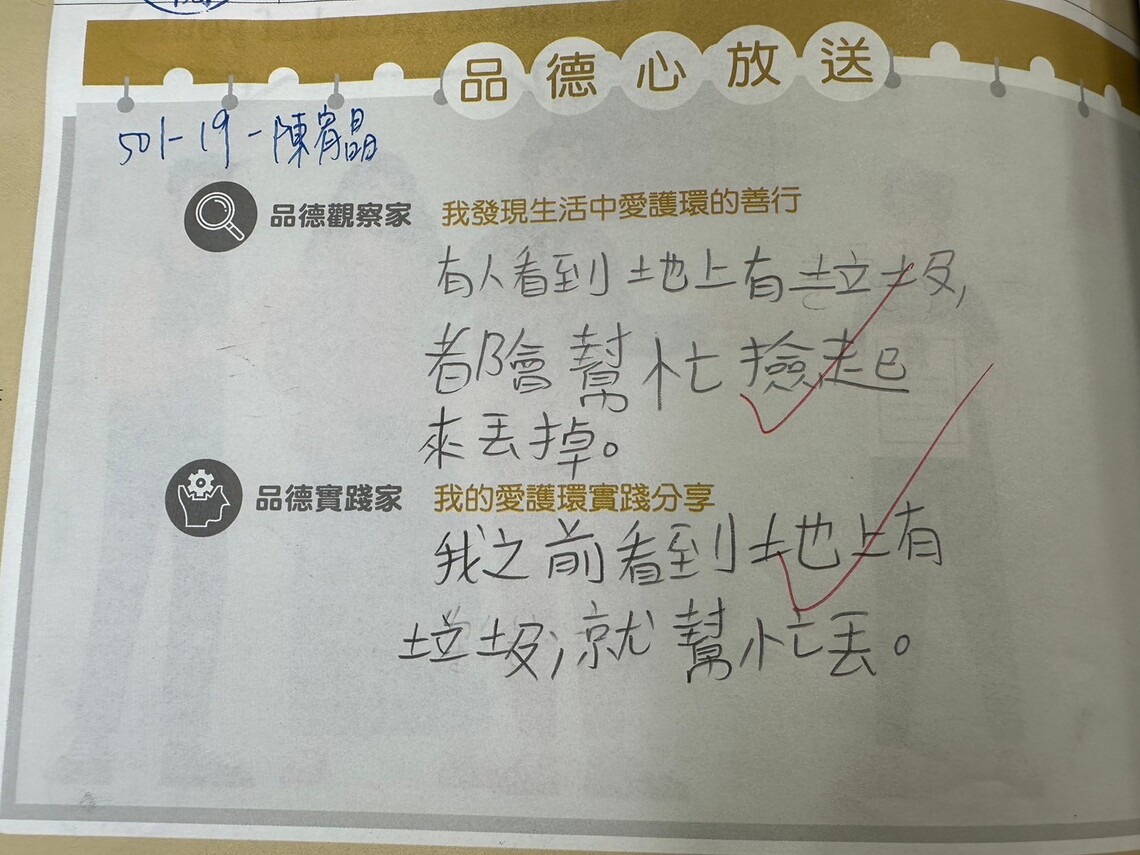 品德心放送
501-19-陳宥晶
品德觀察家 我發現生活中愛護環的善行
有人看到地上有垃圾,
都會幫忙撿起
來丟掉。
品德實踐家 我的愛護環實踐分享
我之前看到地上有
垃圾,就幫忙丟。